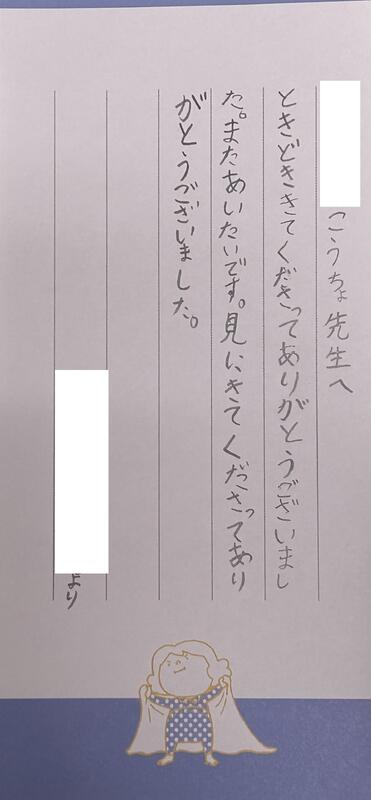 こうちょ先生へ
ときどききてくださってありがとうございまし
た。またあいたいです。見にきてくださってあり
がとうございました。
より